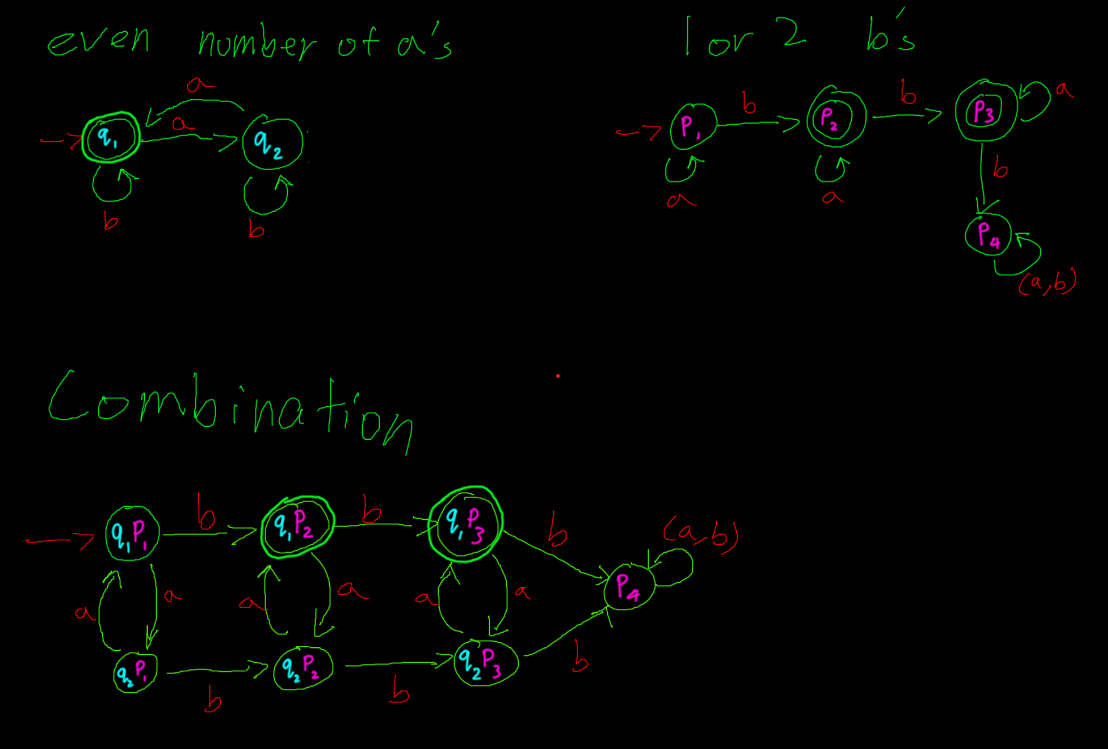 even number of a's
1 or 2 b's
a
a
q1
q2
b
b
b
b
P1
P2
P3
a
a
a
b
P4
(a,b)
Combination
b
b
b
(a,b)
q1P1
q1P2
q1P3
P4
a
a
a
a
a
a
q2P1
q2P2
q2P3
b
b
b